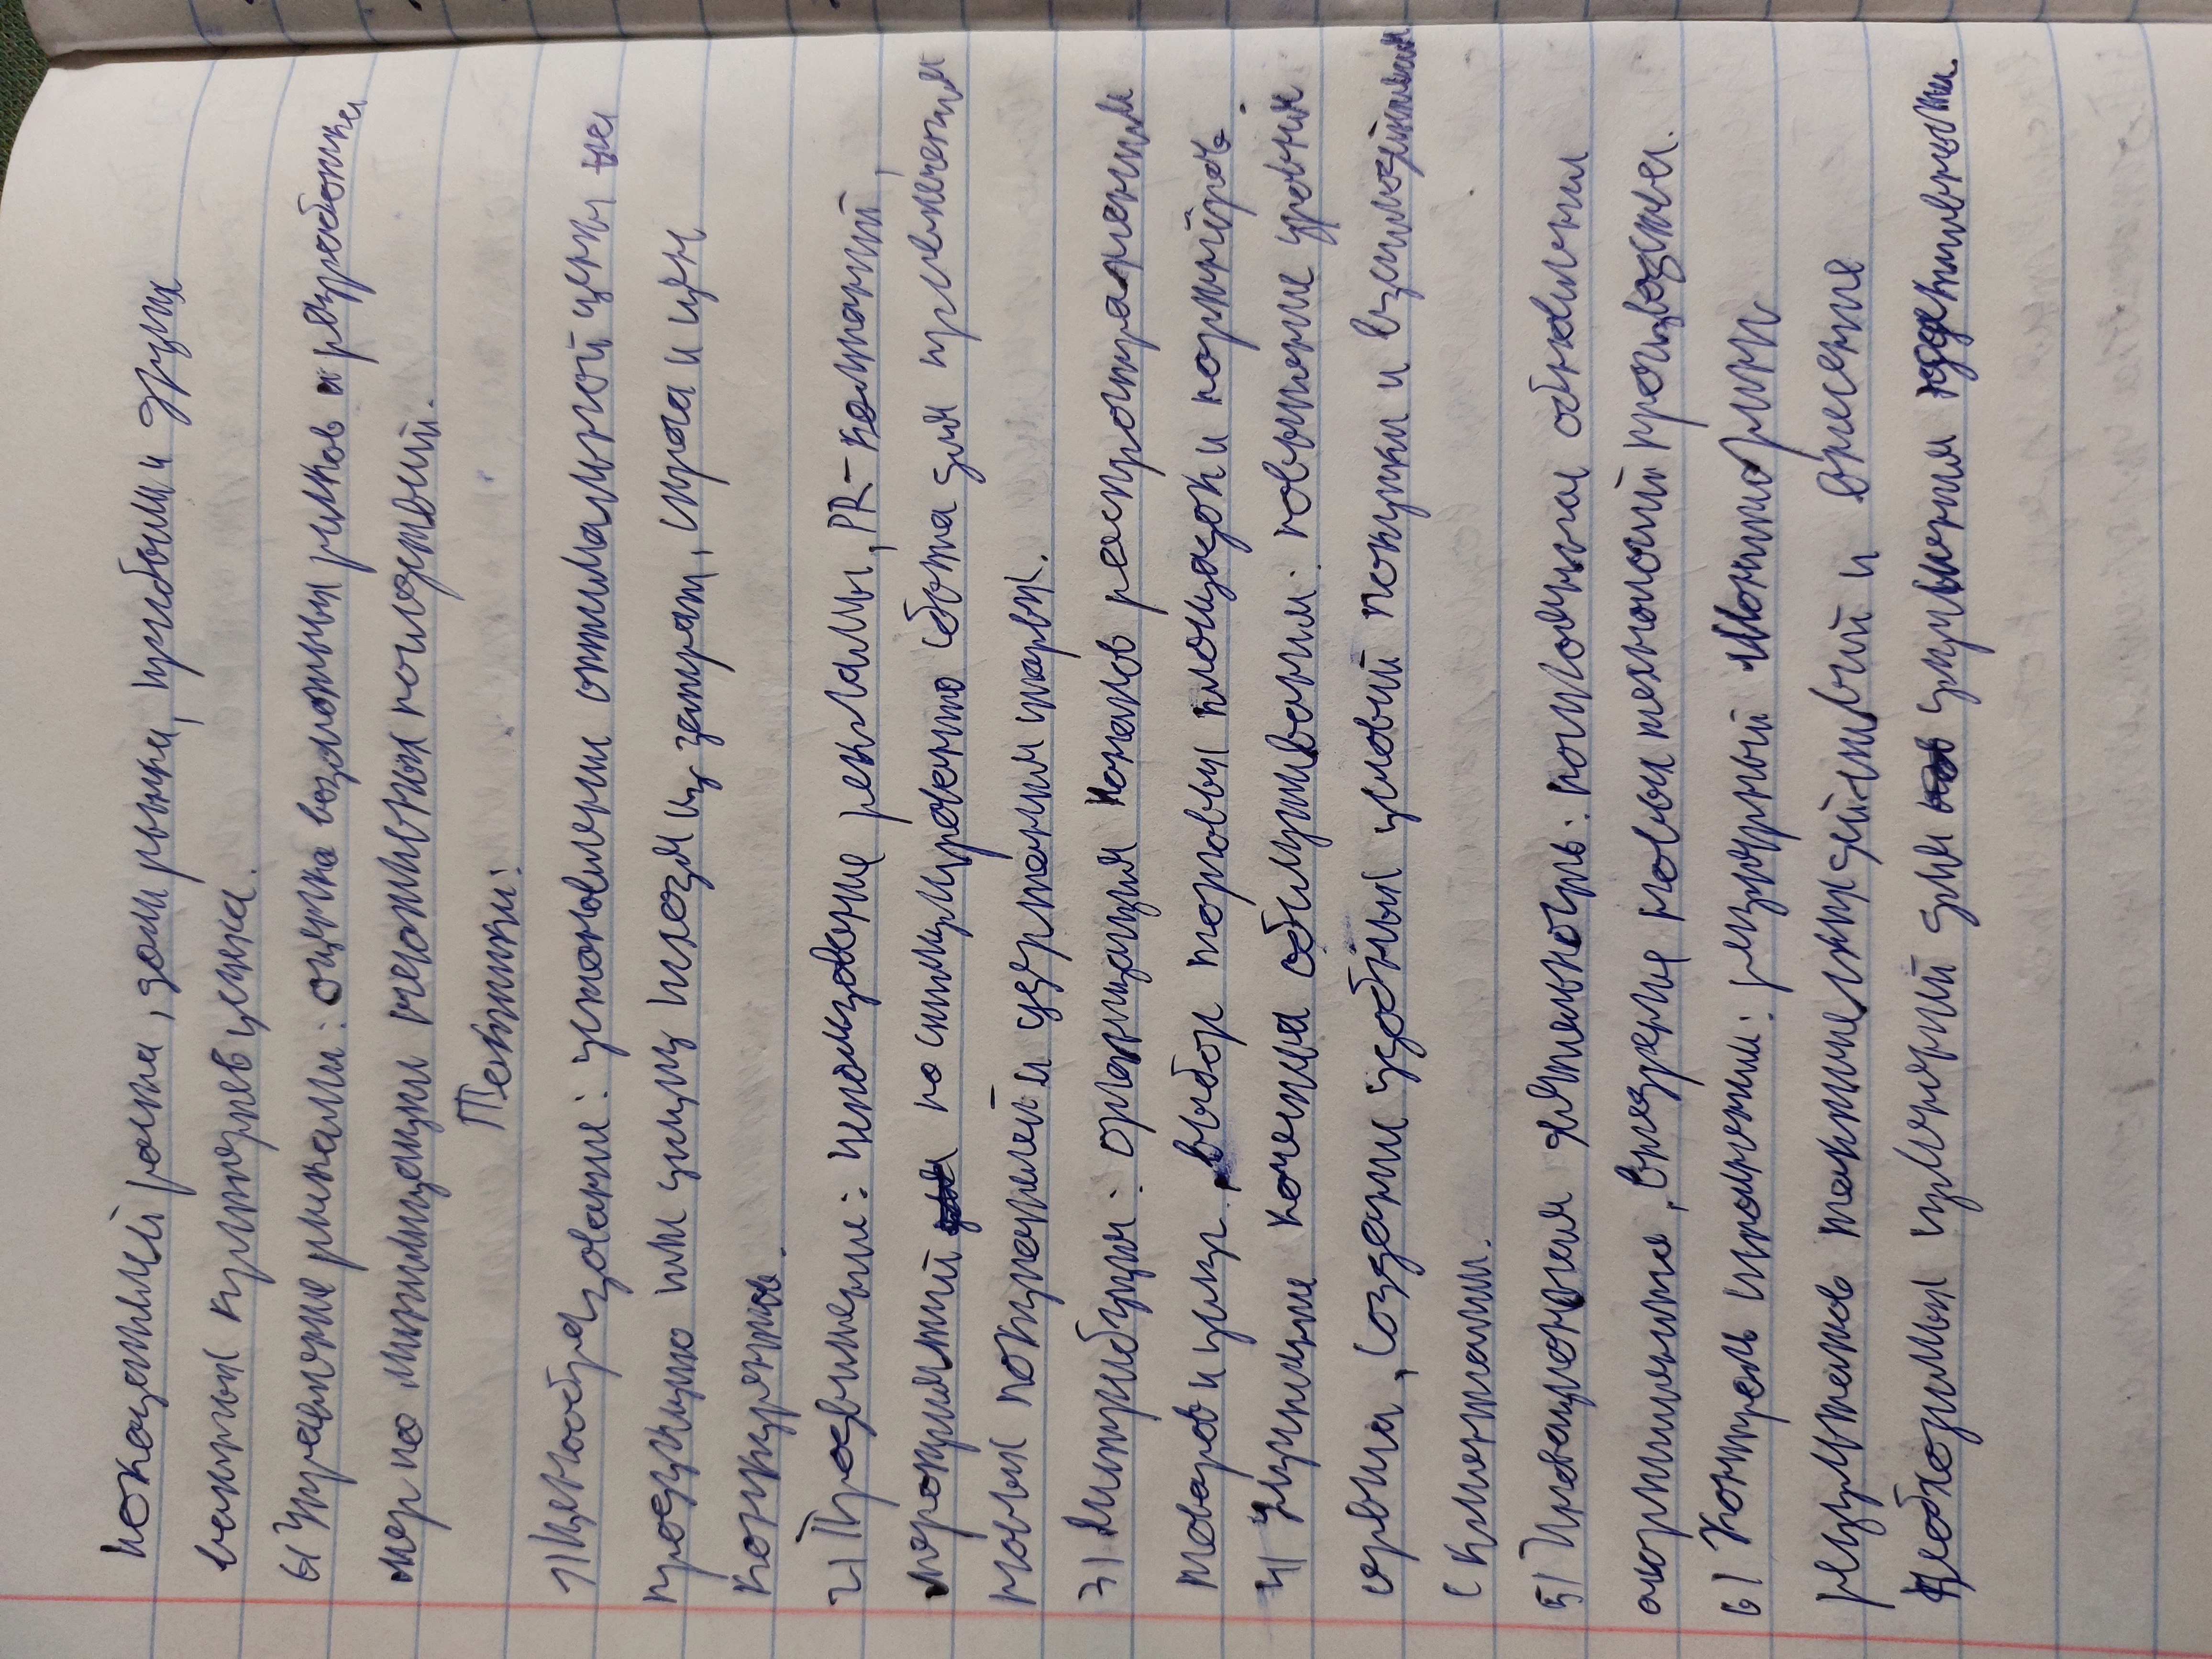 показателей роста, доли рынка, прибыли и других
важных критериев успеха.
6) Управление рисками: оценка возможных рисков и разработка
мер по минимизации негативных последствий.
Тактики:
1) Ценообразование: установление оптимальной цены на
продукцию или услугу исходя из затрат, спроса и цен
конкурентов.
2) Продвижение: использование рекламы, PR-компаний,
мероприятий по стимулированию сбыта для привлечения
новых покупателей и удержания старых.
3) Дистрибуция: организация каналов распространения
товаров и услуг, выбор торговых площадок и партнёров.
4) Улучшение качества обслуживания: повышение уровня
сервиса, создание удобных условий покупки и взаимодействия
с клиентами.
5) Инновационная деятельность: постоянное обновление
ассортимента, внедрение новых технологий производства.
6) Контроль исполнения: регулярный мониторинг
результатов тактических действий и внесение
необходимых изменений для улучшения эффективности.